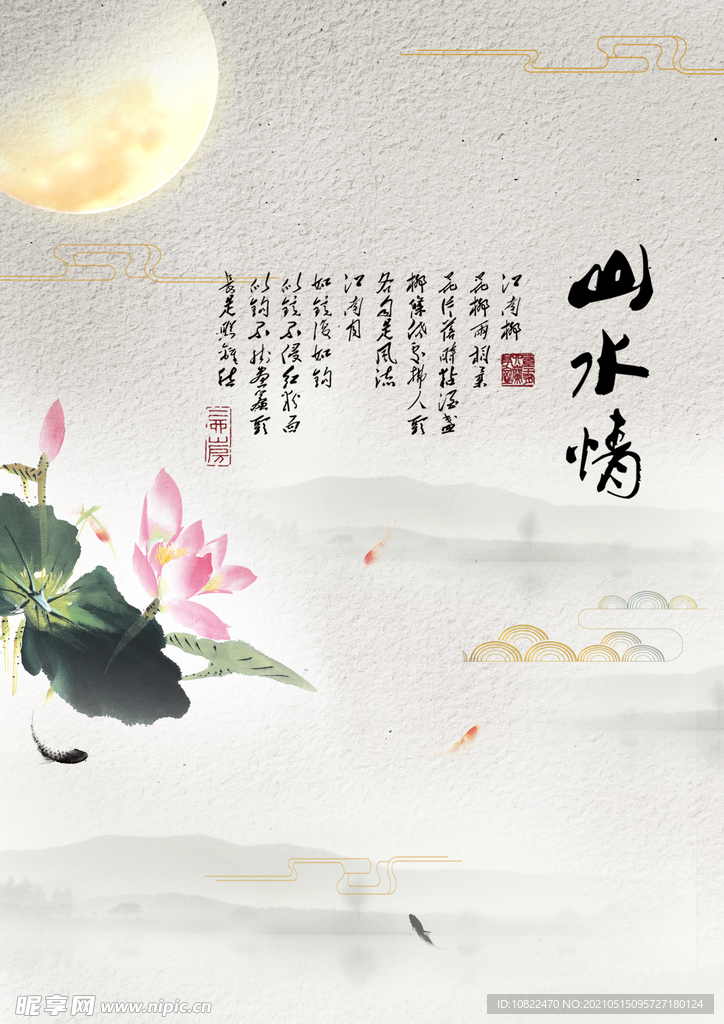 山水情
江南柳
花柳兩相柔
花片落時粘酒盞
柳條低處拂人頭
各自是風流
江南月
如鏡復如鈎
似鏡不侵紅粉面
似鈎不挂畫簾頭
長是照離愁
昵享网 www.nipic.cn
ID:10822470 NO:20210515095727180124